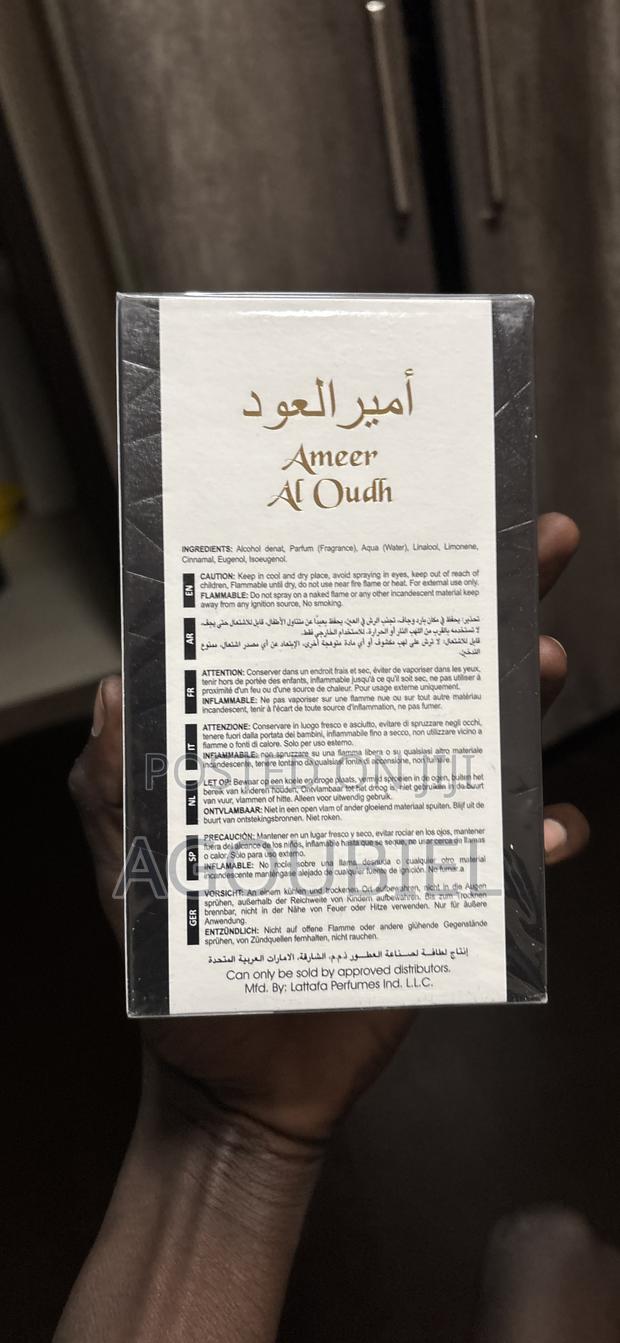 أمير العود
Ameer
Al Oudh
INGREDIENTS: Alcohol denat, Parfum (Fragrance), Aqua (Water), Linalool, Limonene,
Cinnamal, Eugenol, Isoeugenol.
EN
CAUTION: Keep in cool and dry place, avoid spraying in eyes, keep out of reach of
children, Flammable until dry, do not use near fire flame or heat. For external use only.
FLAMMABLE: Do not spray on a naked flame or any other incandescent material keep
away from any ignition source, No smoking.
AR
تحذير: يحفظ في مكان بارد وجاف، تجنب الرش في العين، يحفظ بعيداً عن متناول الأطفال، قابل للاشتعال حتى يجف،
لا تستخدمه بالقرب من اللهب النار أو الحرارة. للاستخدام الخارجي فقط.
قابل للاشتعال: لا ترش على لهب مكشوف أو أي مادة متوهجة أخرى، الإبتعاد عن أي مصدر اشتعال، ممنوع
التدخين.
FR
ATTENTION: Conserver dans un endroit frais et sec, éviter de vaporiser dans les yeux,
tenir hors de portée des enfants, Inflammable jusqu'à ce qu'il soit sec, ne pas utiliser à
proximité d'un feu ou d'une source de chaleur. Pour usage externe uniquement.
INFLAMMABLE: Ne pas vaporiser sur une flamme nue ou sur tout autre matériau
incandescent, tenir à l'écart de toute source d'inflammation, ne pas fumer.
IT
ATTENZIONE: Conservare in luogo fresco e asciutto, evitare di spruzzare negli occhi,
tenere fuori dalla portata dei bambini, infiammabile fino a secco, non utilizzare vicino a
fiamme o fonti di calore. Solo per uso esterno.
INFIAMMABILE: non spruzzare su una fiamma libera o su qualsiasi altro materiale
incandescente, tenere lontano da qualsiasi fonte di accensione, non fumare.
NL
LET OP: Bewaar op een koele en droge plaats, vermijd sproeien in de ogen, buiten het
bereik van kinderen houden, Ontvlambaar tot het droog is, niet gebruiken in de buurt
van vuur, vlammen of hitte. Alleen voor uitwendig gebruik.
ONTVLAMBAAR: Niet in een open vlam of ander gloeiend materiaal spuiten. Blijf uit de
buurt van ontstekingsbronnen. Niet roken.
SP
PRECAUCIÓN: Mantener en un lugar fresco y seco, evitar rociar en los ojos, mantener
fuera del alcance de los niños, inflamable hasta que se seque, no usar cerca de llamas
o calor. Solo para uso externo.
INFLAMABLE: No rocíe sobre una llama desnuda o cualquier otro material
incandescente manténgase alejado de cualquier fuente de ignición. No fumar.
GER
VORSICHT: An einem kühlen und trockenen Ort aufbewahren, nicht in die Augen
sprühen, außerhalb der Reichweite von Kindern aufbewahren, Bis zum Trocknen
brennbar, nicht in der Nähe von Feuer oder Hitze verwenden. Nur für äußere
Anwendung.
ENTZÜNDLICH: Nicht auf offene Flamme oder andere glühende Gegenstände
sprühen, von Zündquellen fernhalten, nicht rauchen.
إنتاج لطافة لصناعة العطور ذ.م.م. الشارقة، الامارات العربية المتحدة
Can only be sold by approved distributors.
Mfd. By: Lattafa Perfumes Ind. L.L.C.
POSTED ON JIJI